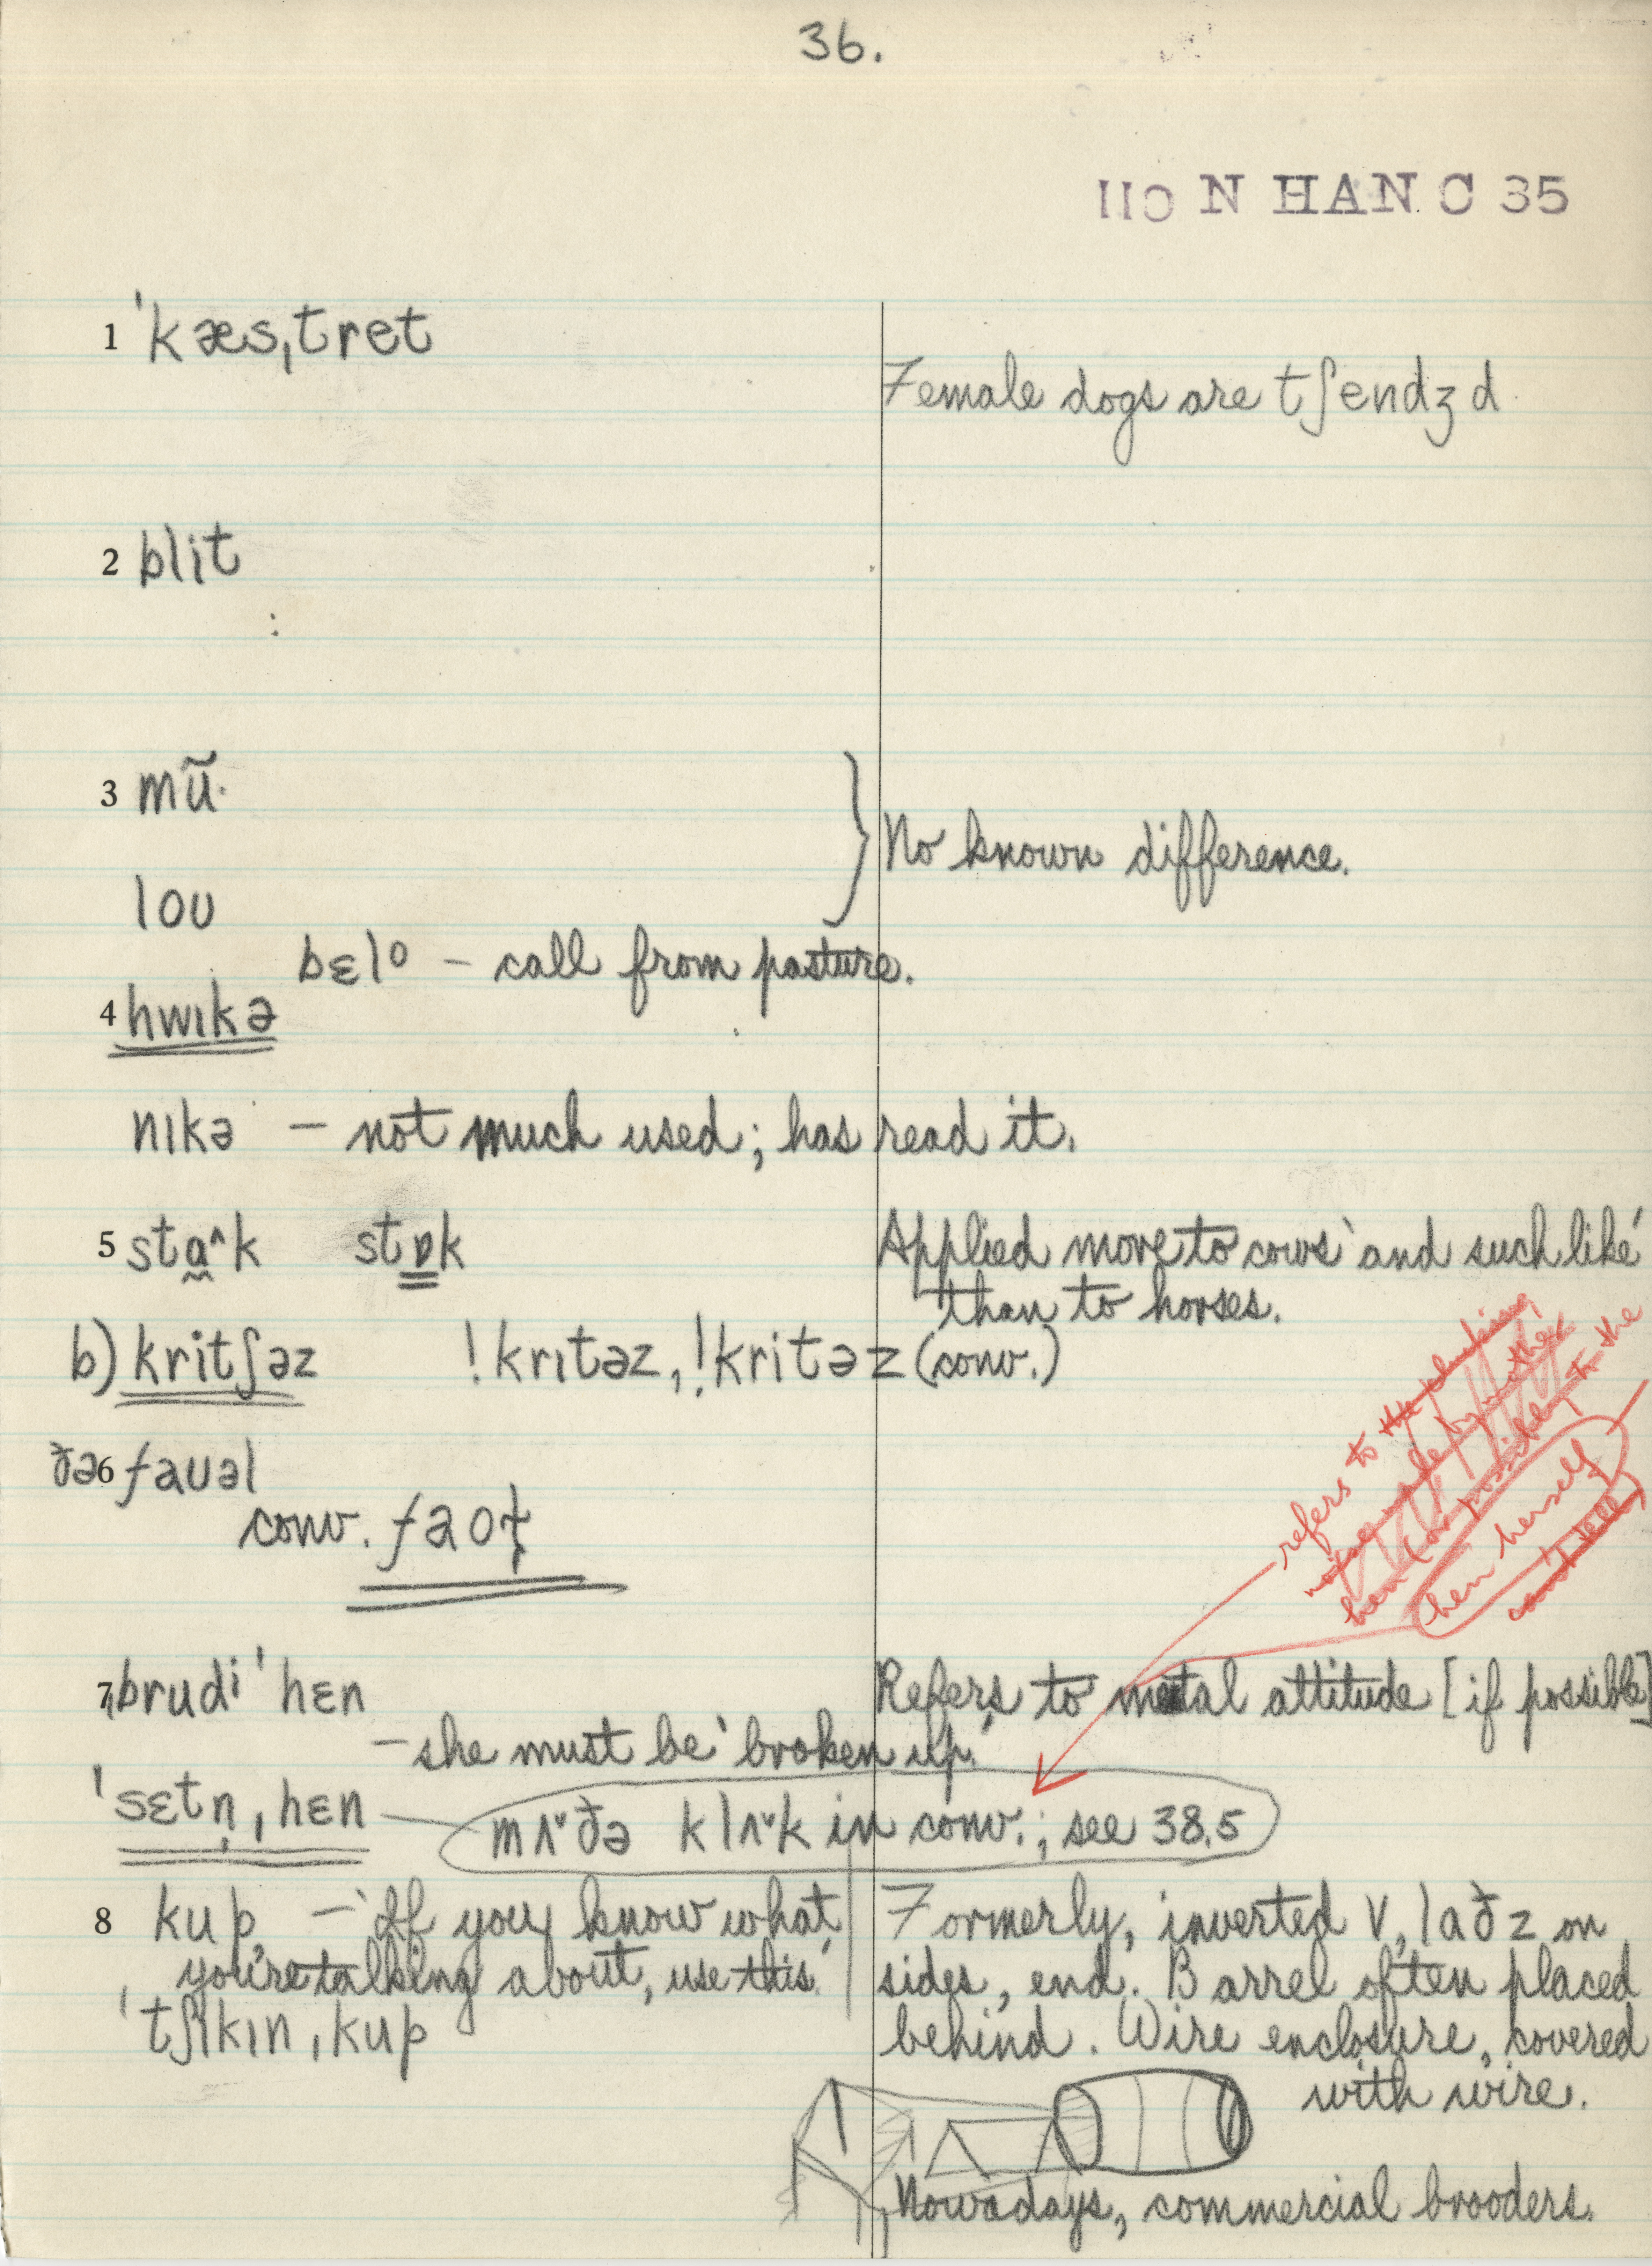 36.
IIO N HAN C 35
1 ˈkæsˌtret
Female dogs are tʃendʒd
2 blit
3 mũ·
No known difference.
loʊ
bɛlᵒ – call from pasture.
4 hwɪkə
nɪkə – not much used; has read it.
5 sta̰^k stɒk
Applied more to cows 'and such like'
than to horses.
b) kritʃəz !krɪtəz, !kritəz (conv.)
ðə 6 faʊəl
conv. faoɫ
refers to the clucking
noise made by mother
hen (or possibly to the
hen herself
can't tell)
7 ˌbrudiˈhɛn
Refers to metal attitude [if possible]
– she must be 'broken up.'
ˈsɛtn̩ˌhɛn
mʌˇðə klʌˇk in conv.; see 38.5
8 kup – 'If you know what
you're talking about, use this.'
ˈtʃɪkɪnˌkup
Formerly, inverted V, laðz on
sides, end. Barrel often placed
behind. Wire enclosure, covered
with wire.
Nowadays, commercial brooders.